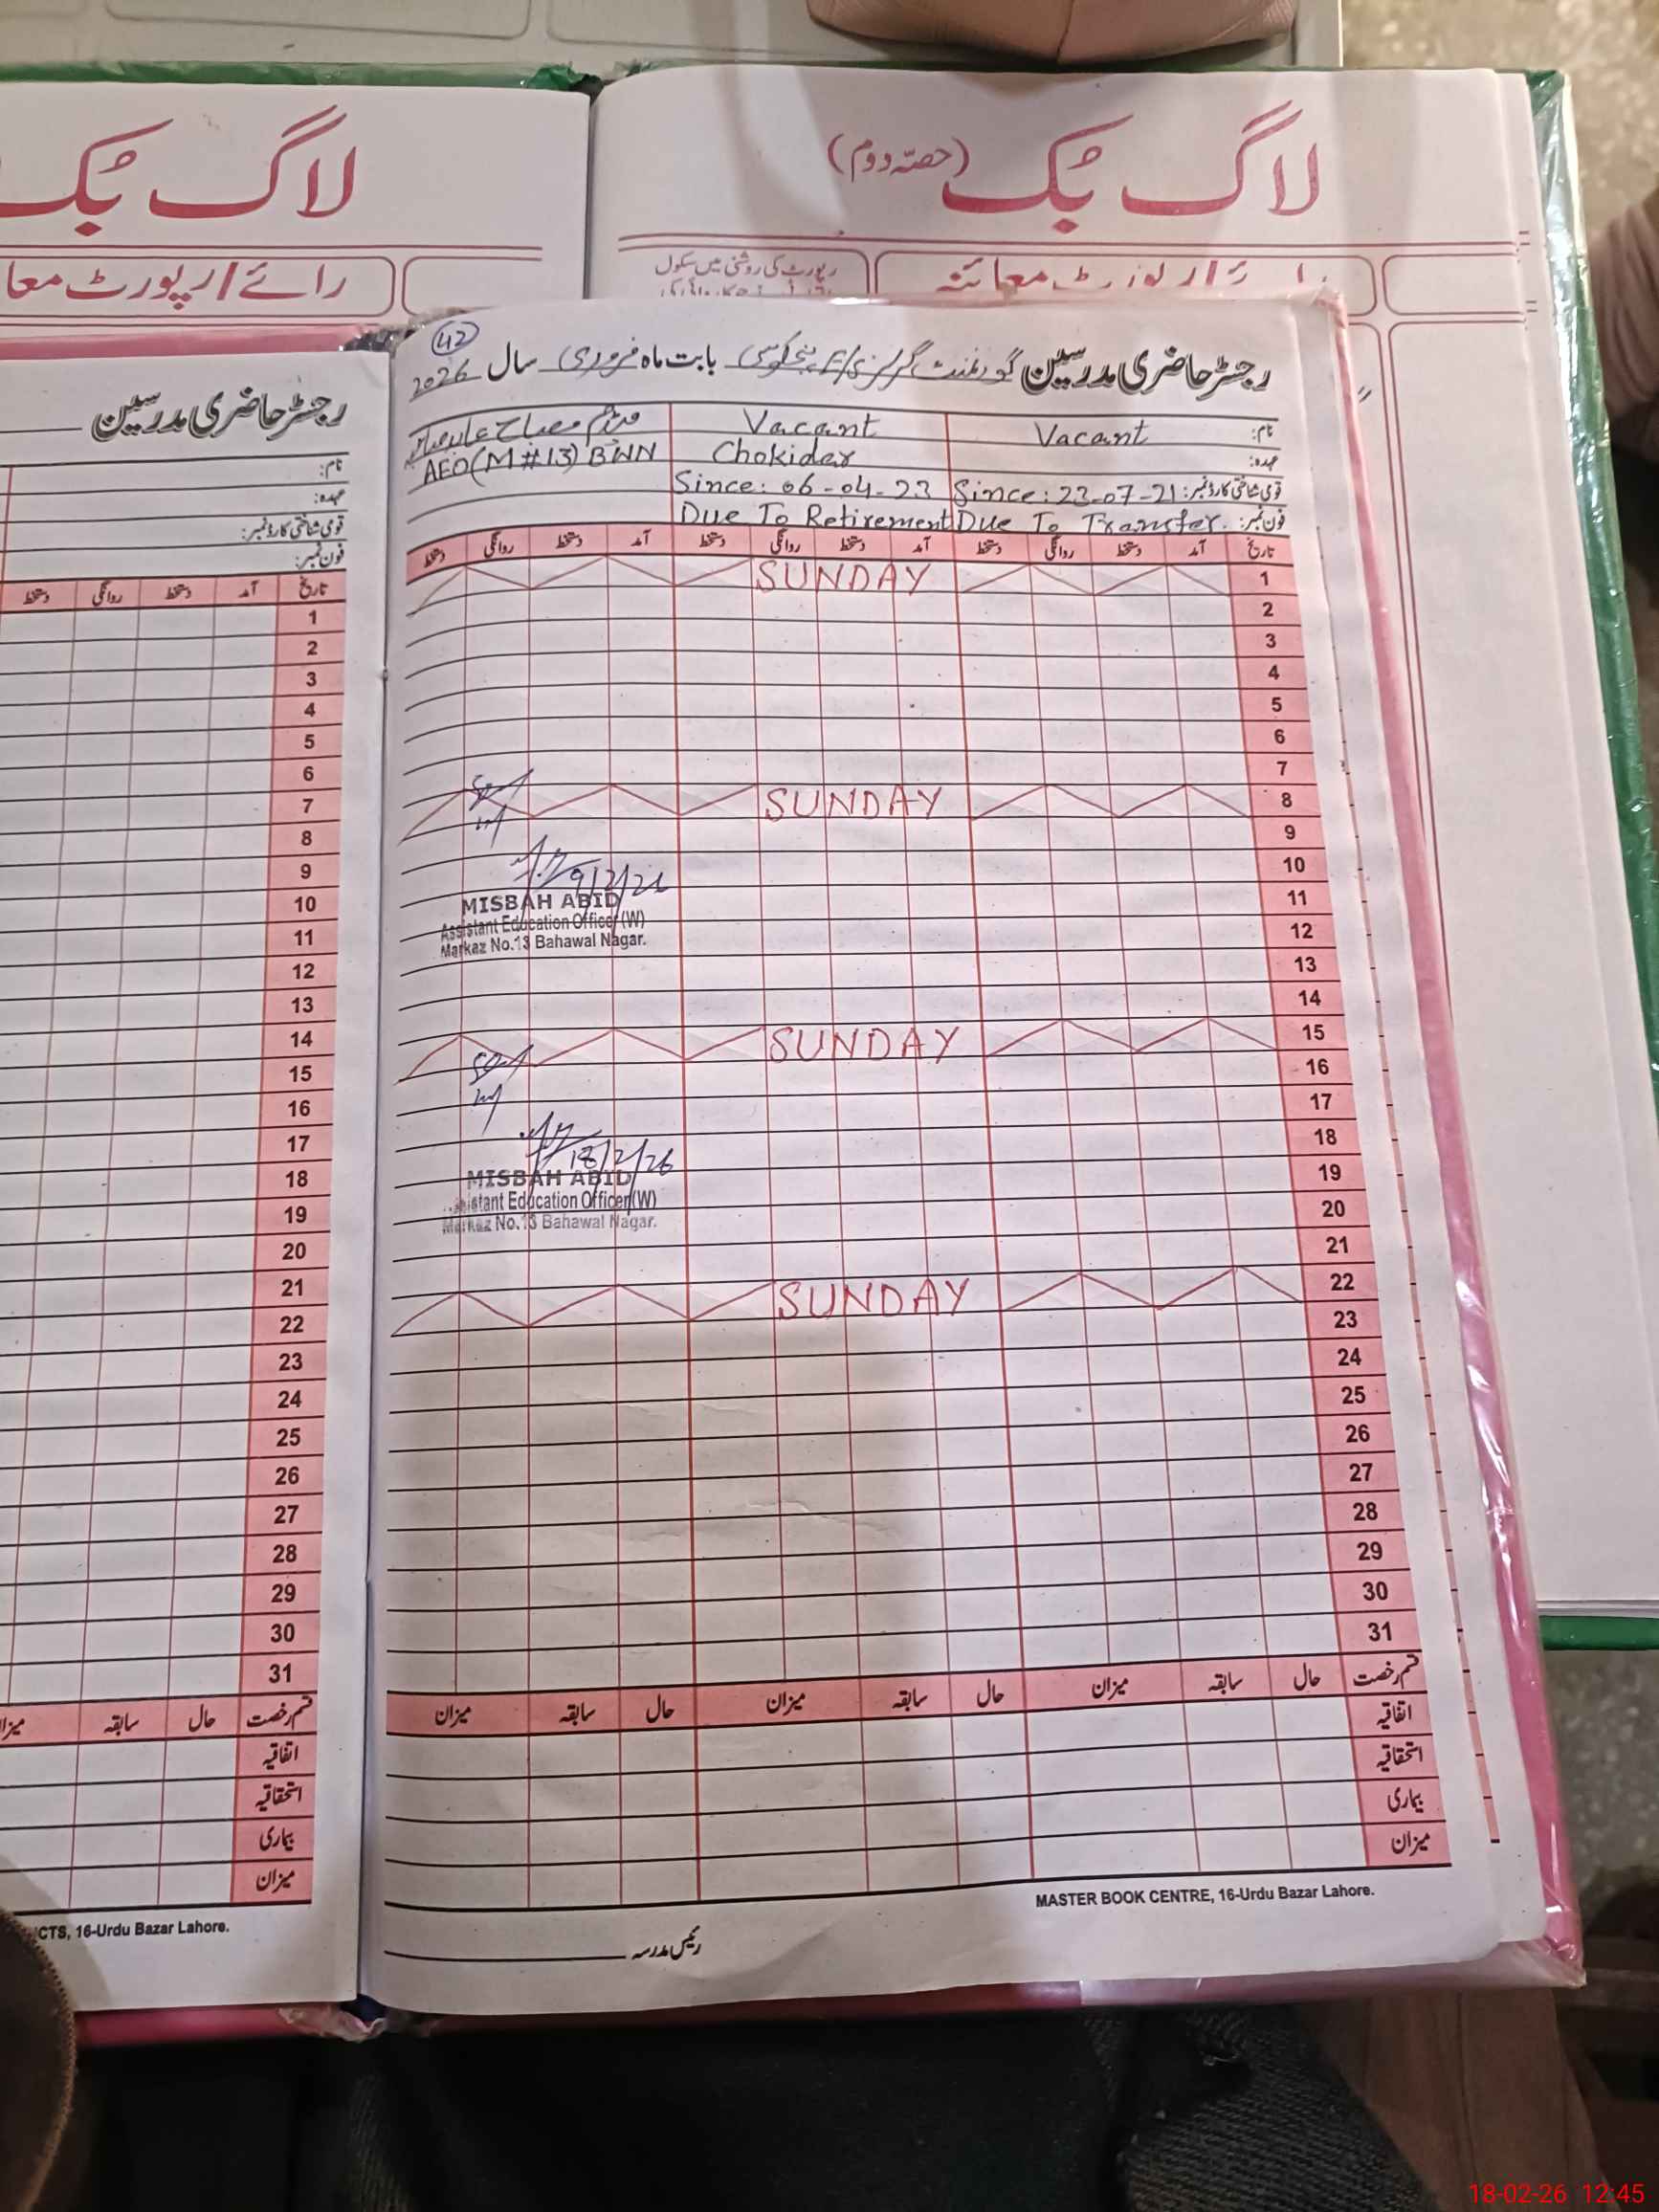 لاگ بُک
رائے/رپورٹ معا
لاگ بُک (حصّہ دوم)
رپورٹ کی روشنی میں سکول
رجسٹر حاضری مدرسین
نام:
عہدہ:
قومی شناختی کارڈ نمبر:
فون نمبر:
تاریخ آمد دستخط روانگی دستخط
1
2
3
4
5
6
7
8
9
10
11
12
13
14
15
16
17
18
19
20
21
22
23
24
25
26
27
28
29
30
31
قسم رخصت حال سابقہ
اتفاقیہ
استحقاقیہ
بیماری
میزان
CTS, 16-Urdu Bazar Lahore.
42
رجسٹر حاضری مدرسین گورنمنٹ گرلز بابت ماہ فروری سال 2026
نام: Vacant Vacant میڈم مصباح عابد صاحبہ
عہدہ: Chokidar AEO (M#13) BWN
قومی شناختی کارڈ نمبر: Since: 23-07-21 Since: 06-04-23
فون نمبر: Due To Transfer. Due To Retirement
تاریخ آمد دستخط روانگی دستخط آمد دستخط روانگی دستخط آمد دستخط روانگی دستخط
1 SUNDAY
2
3
4
5
6
7
8 SUNDAY
9
10
9/2/26
11
MISBAH ABID
Assistant Education Officer (W)
12
Markaz No.13 Bahawal Nagar.
13
14
15 SUNDAY
16
17
18
18/2/26
19
MISBAH ABID
20
Assistant Education Officer (W)
Markaz No.13 Bahawal Nagar.
21
22 SUNDAY
23
24
25
26
27
28
29
30
31
قسم رخصت حال سابقہ میزان حال سابقہ میزان حال سابقہ میزان
اتفاقیہ
استحقاقیہ
بیماری
میزان
MASTER BOOK CENTRE, 16-Urdu Bazar Lahore.
رئیس مدرسہ
18-02-26 12:45